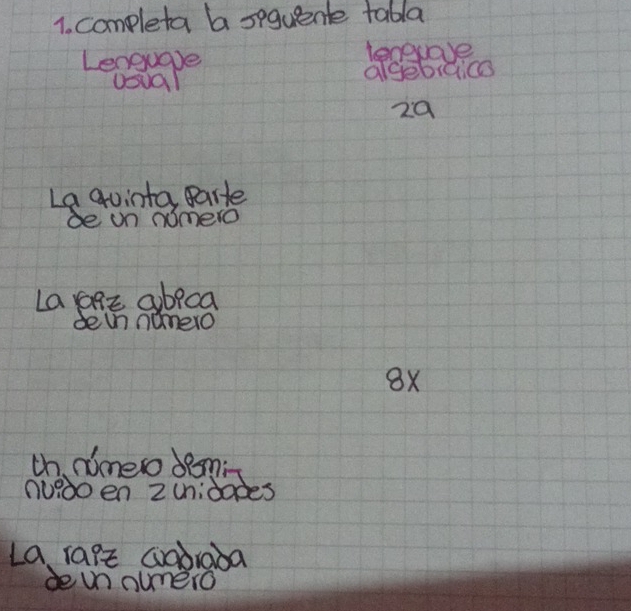 1. completa la siguiente tabla
Lenguaje
usual
lenguaje
algebraico
2a
La quinta parte
de un número
La raiz cubica
de un número
8x
Un número dismi-
nuido en 2 unidades
La raiz cuadrada
de un numero